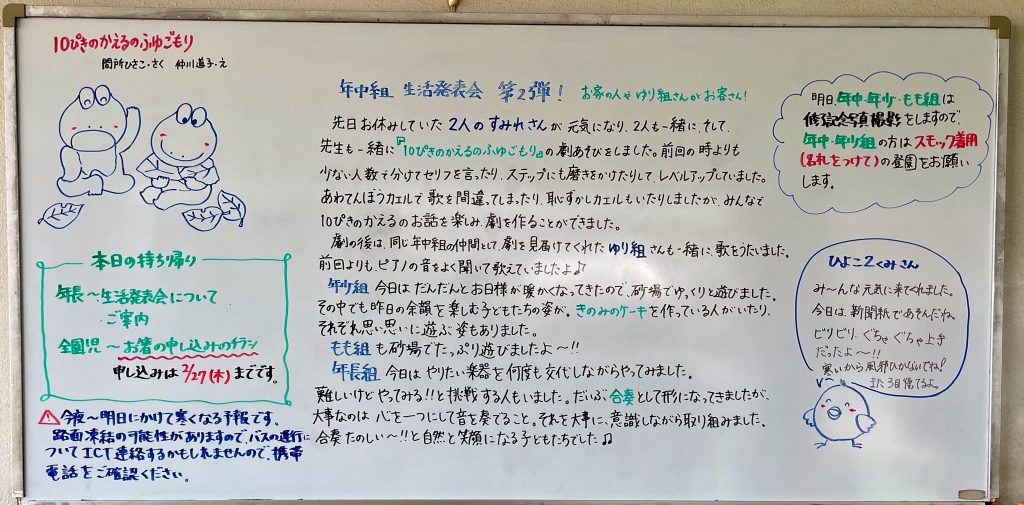 10ぴきのかえるのふゆごもり
間所ひさこ・さく 仲川道子・え
年中組 生活発表会 第2弾! お家の人や ゆり組さんが お客さん!
先日お休みしていた 2人の すみれさん が 元気になり、2人も一緒に、そして、
先生も一緒に『10ぴきのかえるのふゆごもり』の劇あそびをしました。前回の時よりも
少ない人数で分けてセリフを言ったり、ステップにも磨きをかけたりして、レベルアップしていました。
あわてんぼうカエルで歌を間違ってしまったり、恥ずかしカエルもいたりしましたが、みんなで
10ぴきのかえるのお話を楽しみ、劇を作ることができました。
劇の後は、同じ年中組の仲間として、劇を見届けてくれた ゆり組 さんも一緒に、歌をうたいました。
前回よりも、ピアノの音をよく聞いて歌えていましたよ♪
年少組 今日は だんだんと お日様が 暖かくなってきたので、砂場でゆっくりと遊びました。
その中でも 昨日の 余韻を 楽しむ 子どもたちの姿が。きのみのケーキを作っている人がいたり、
それぞれ思い思いに 遊ぶ 姿もありました。
もも組も 砂場で たっぷり遊びましたよ〜!!
年長組 今日は やりたい楽器を 何度も 交代しながら やってみました。
難しいけど やってみる!!と 挑戦 する人もいました。だいぶ 合奏 として 形に なってきましたが、
大事なのは 心を 一つにして 音を 奏でること。それを 大事に、意識しながら 取り組みました。
合奏 たのしい〜!!と自然と 笑顔に なる 子どもたちでした♫
本日の持ち帰り
年長〜生活発表会について
ご案内
全園児〜お箸の申し込みのチラシ
申し込みは 2/27(木)までです。
⚠今夜〜明日にかけて寒くなる予報です。
路面凍結の可能性がありますので、バスの運行に
ついてICT連絡するかもしれませんので、携帯
電話をご確認ください。
明日、年中・年少・もも組は
修了記念写真撮影をしますので、
年中・年少組 の方は スモック着用
(名札をつけて)の登園をお願い
します。
ひよこ2くみさん
み〜んな元気に来てくれました。
今日は、新聞紙であそんだね。
ビリビリ、ぐちゃぐちゃ上手
だったよ〜!!
寒いから風邪ひかないでね!
また3日待ってるよ。